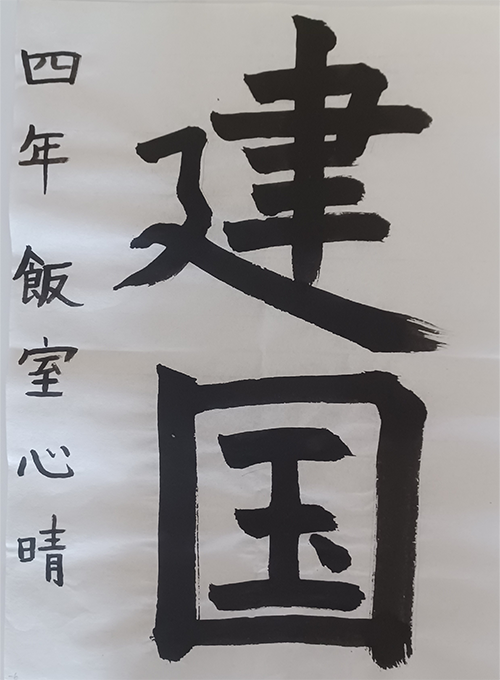 建国
四年 飯室心晴